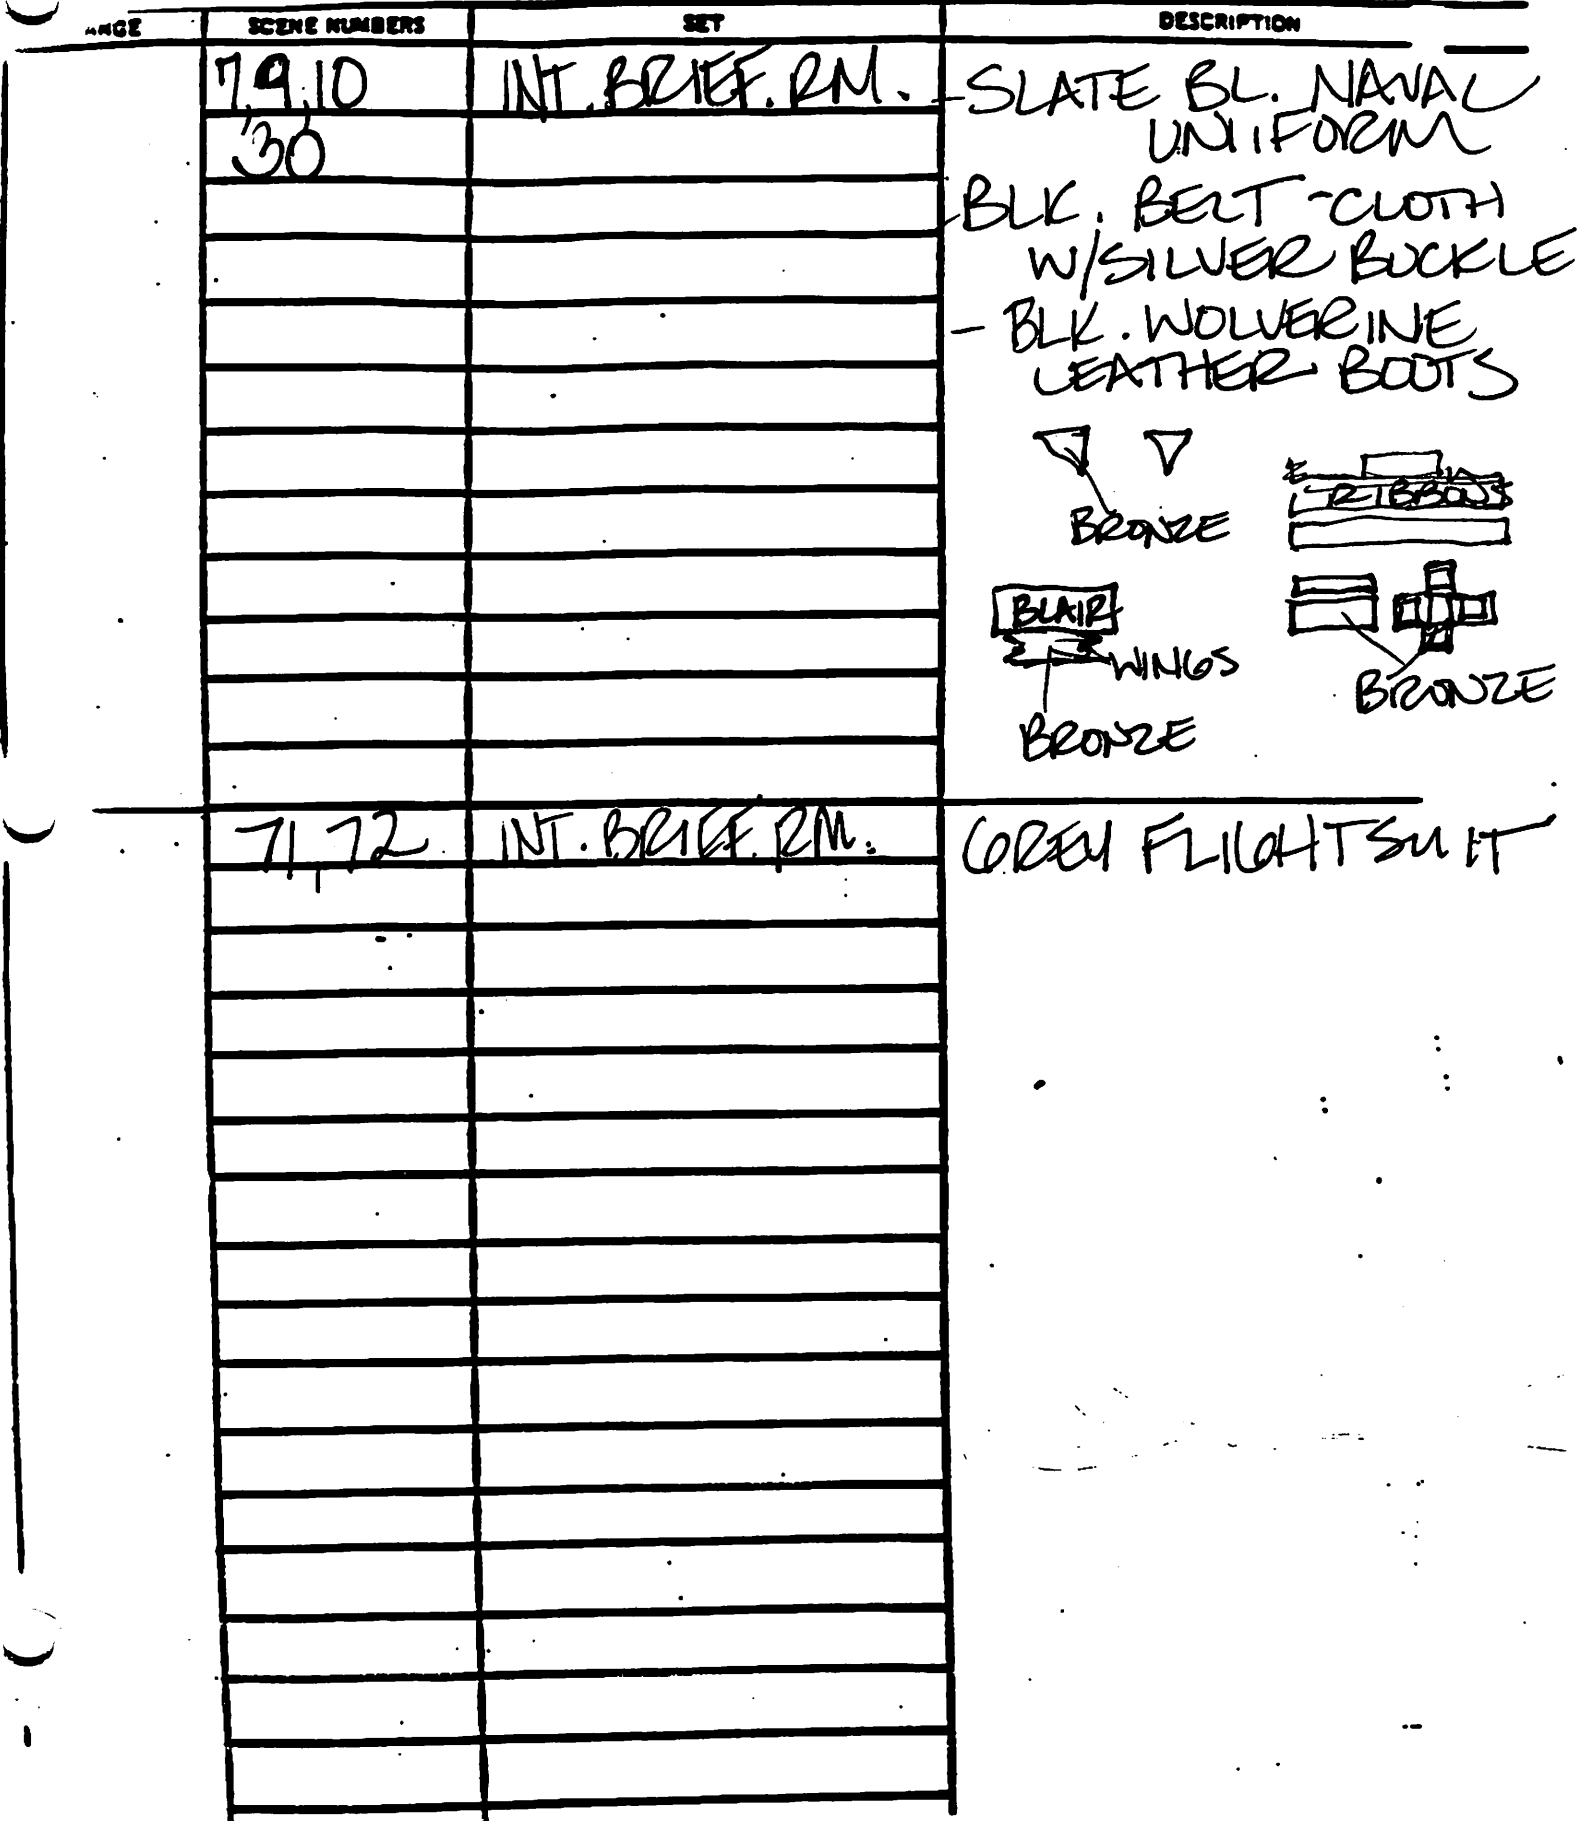 SCENE NUMBERS SET DESCRIPTION
7, 9, 10 INT. BRIEF. RM. - SLATE BL. NAVAL
30 UNIFORM
- BLK. BELT - CLOTH
W/SILVER BUCKLE
- BLK. WOLVERINE
LEATHER BOOTS
RIBBONS
BRONZE
BLAIR
WINGS
BRONZE
BRONZE
71, 72 INT. BRIEF. RM. GREY FLIGHTSUIT